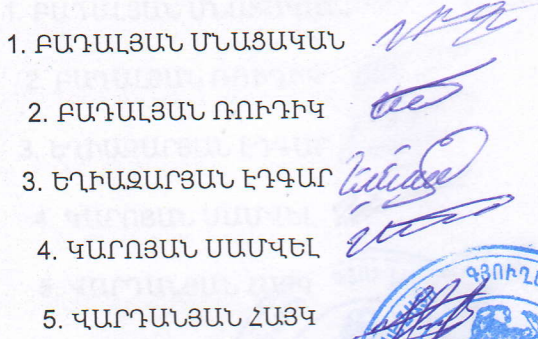 1. ԲԱԴԱԼՅԱՆ ՄՆԱՑԱԿԱՆ
2. ԲԱԴԱԼՅԱՆ ՌՈՒԴԻԿ
3. ԵՂԻԱԶԱՐՅԱՆ ԷԴԳԱՐ
4. ԿԱՐՈՅԱՆ ՍԱՄՎԵԼ
5. ՎԱՐԴԱՆՅԱՆ ՀԱՅԿ